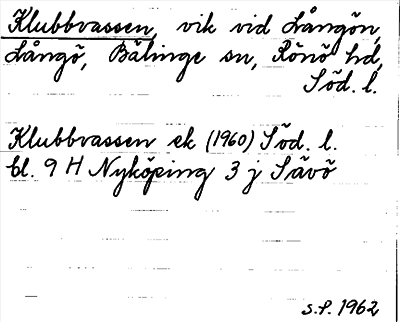 Klubbvassen, vik vid Långön,
Långö, Bälinge sn, Rönö hd,
Söd. l.
Klubbvassen ek (1960) Söd. l.
bl. 9 H Nyköping 3 j Sävö
s.f. 1962